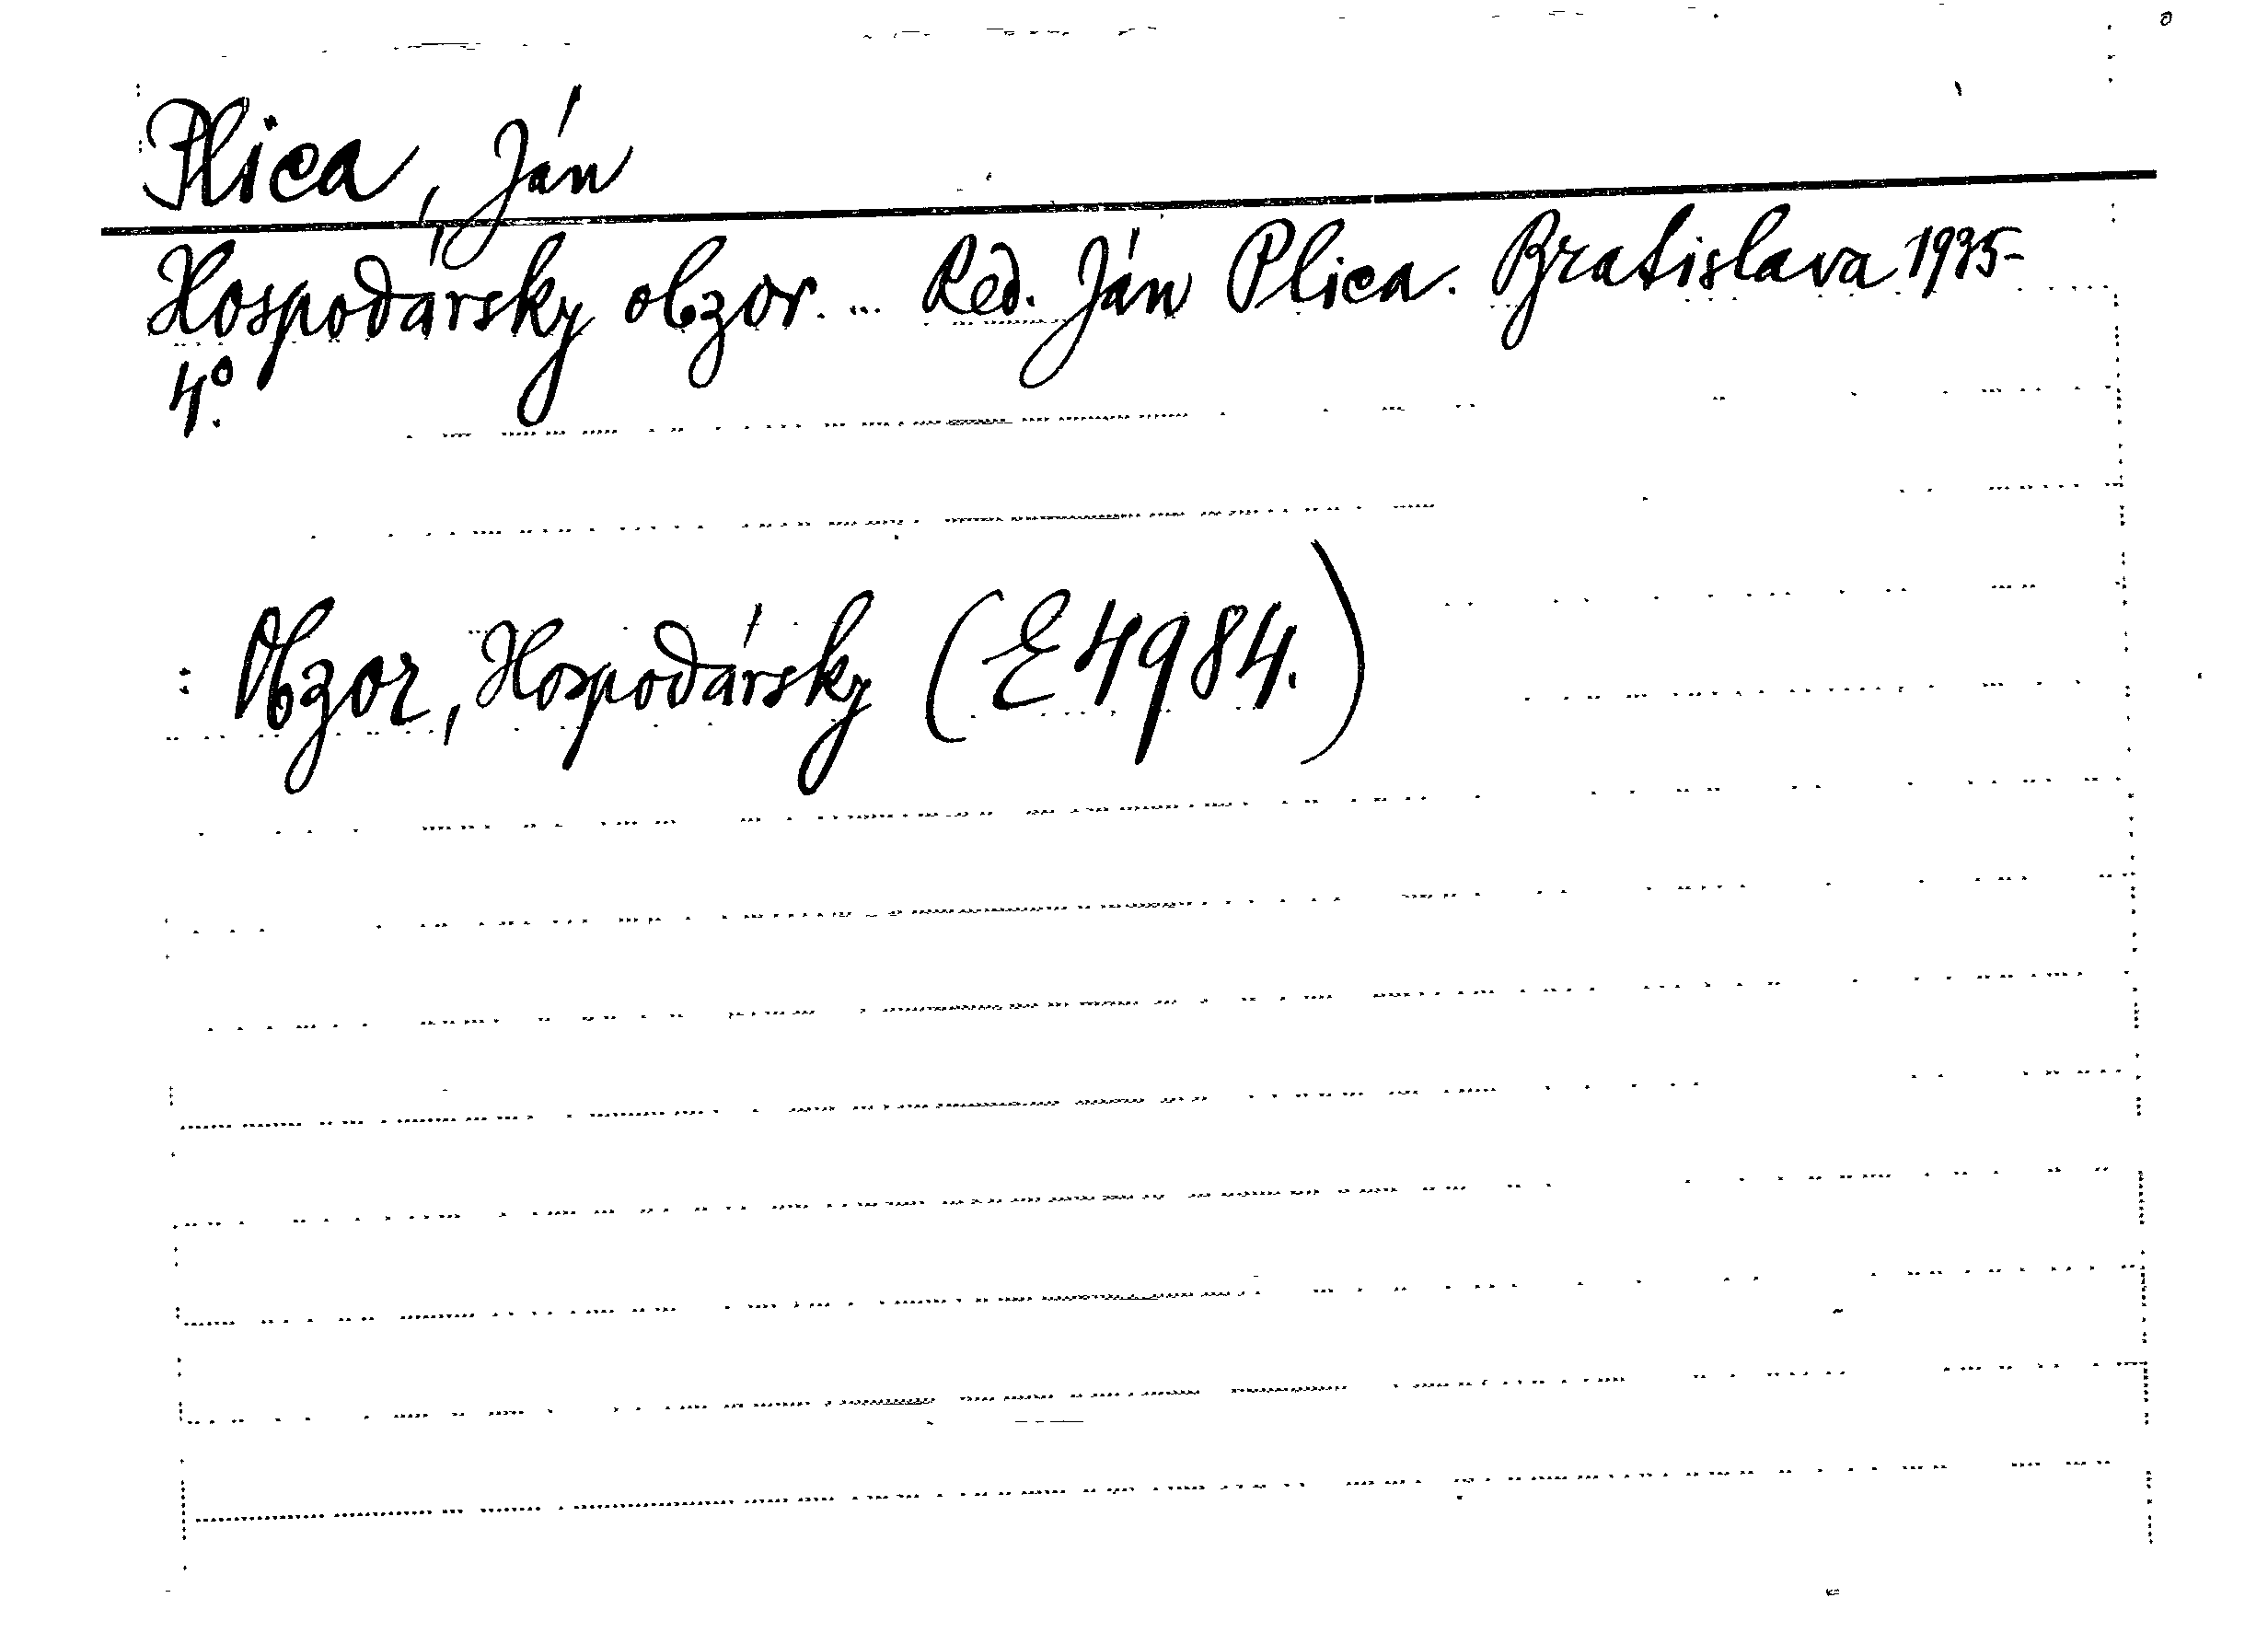 Plica, Ján
Hospodársky obzor. ... Red. Ján Plica. Bratislava 1935-
4.°
: Obzor, Hospodársky (E 4984.)